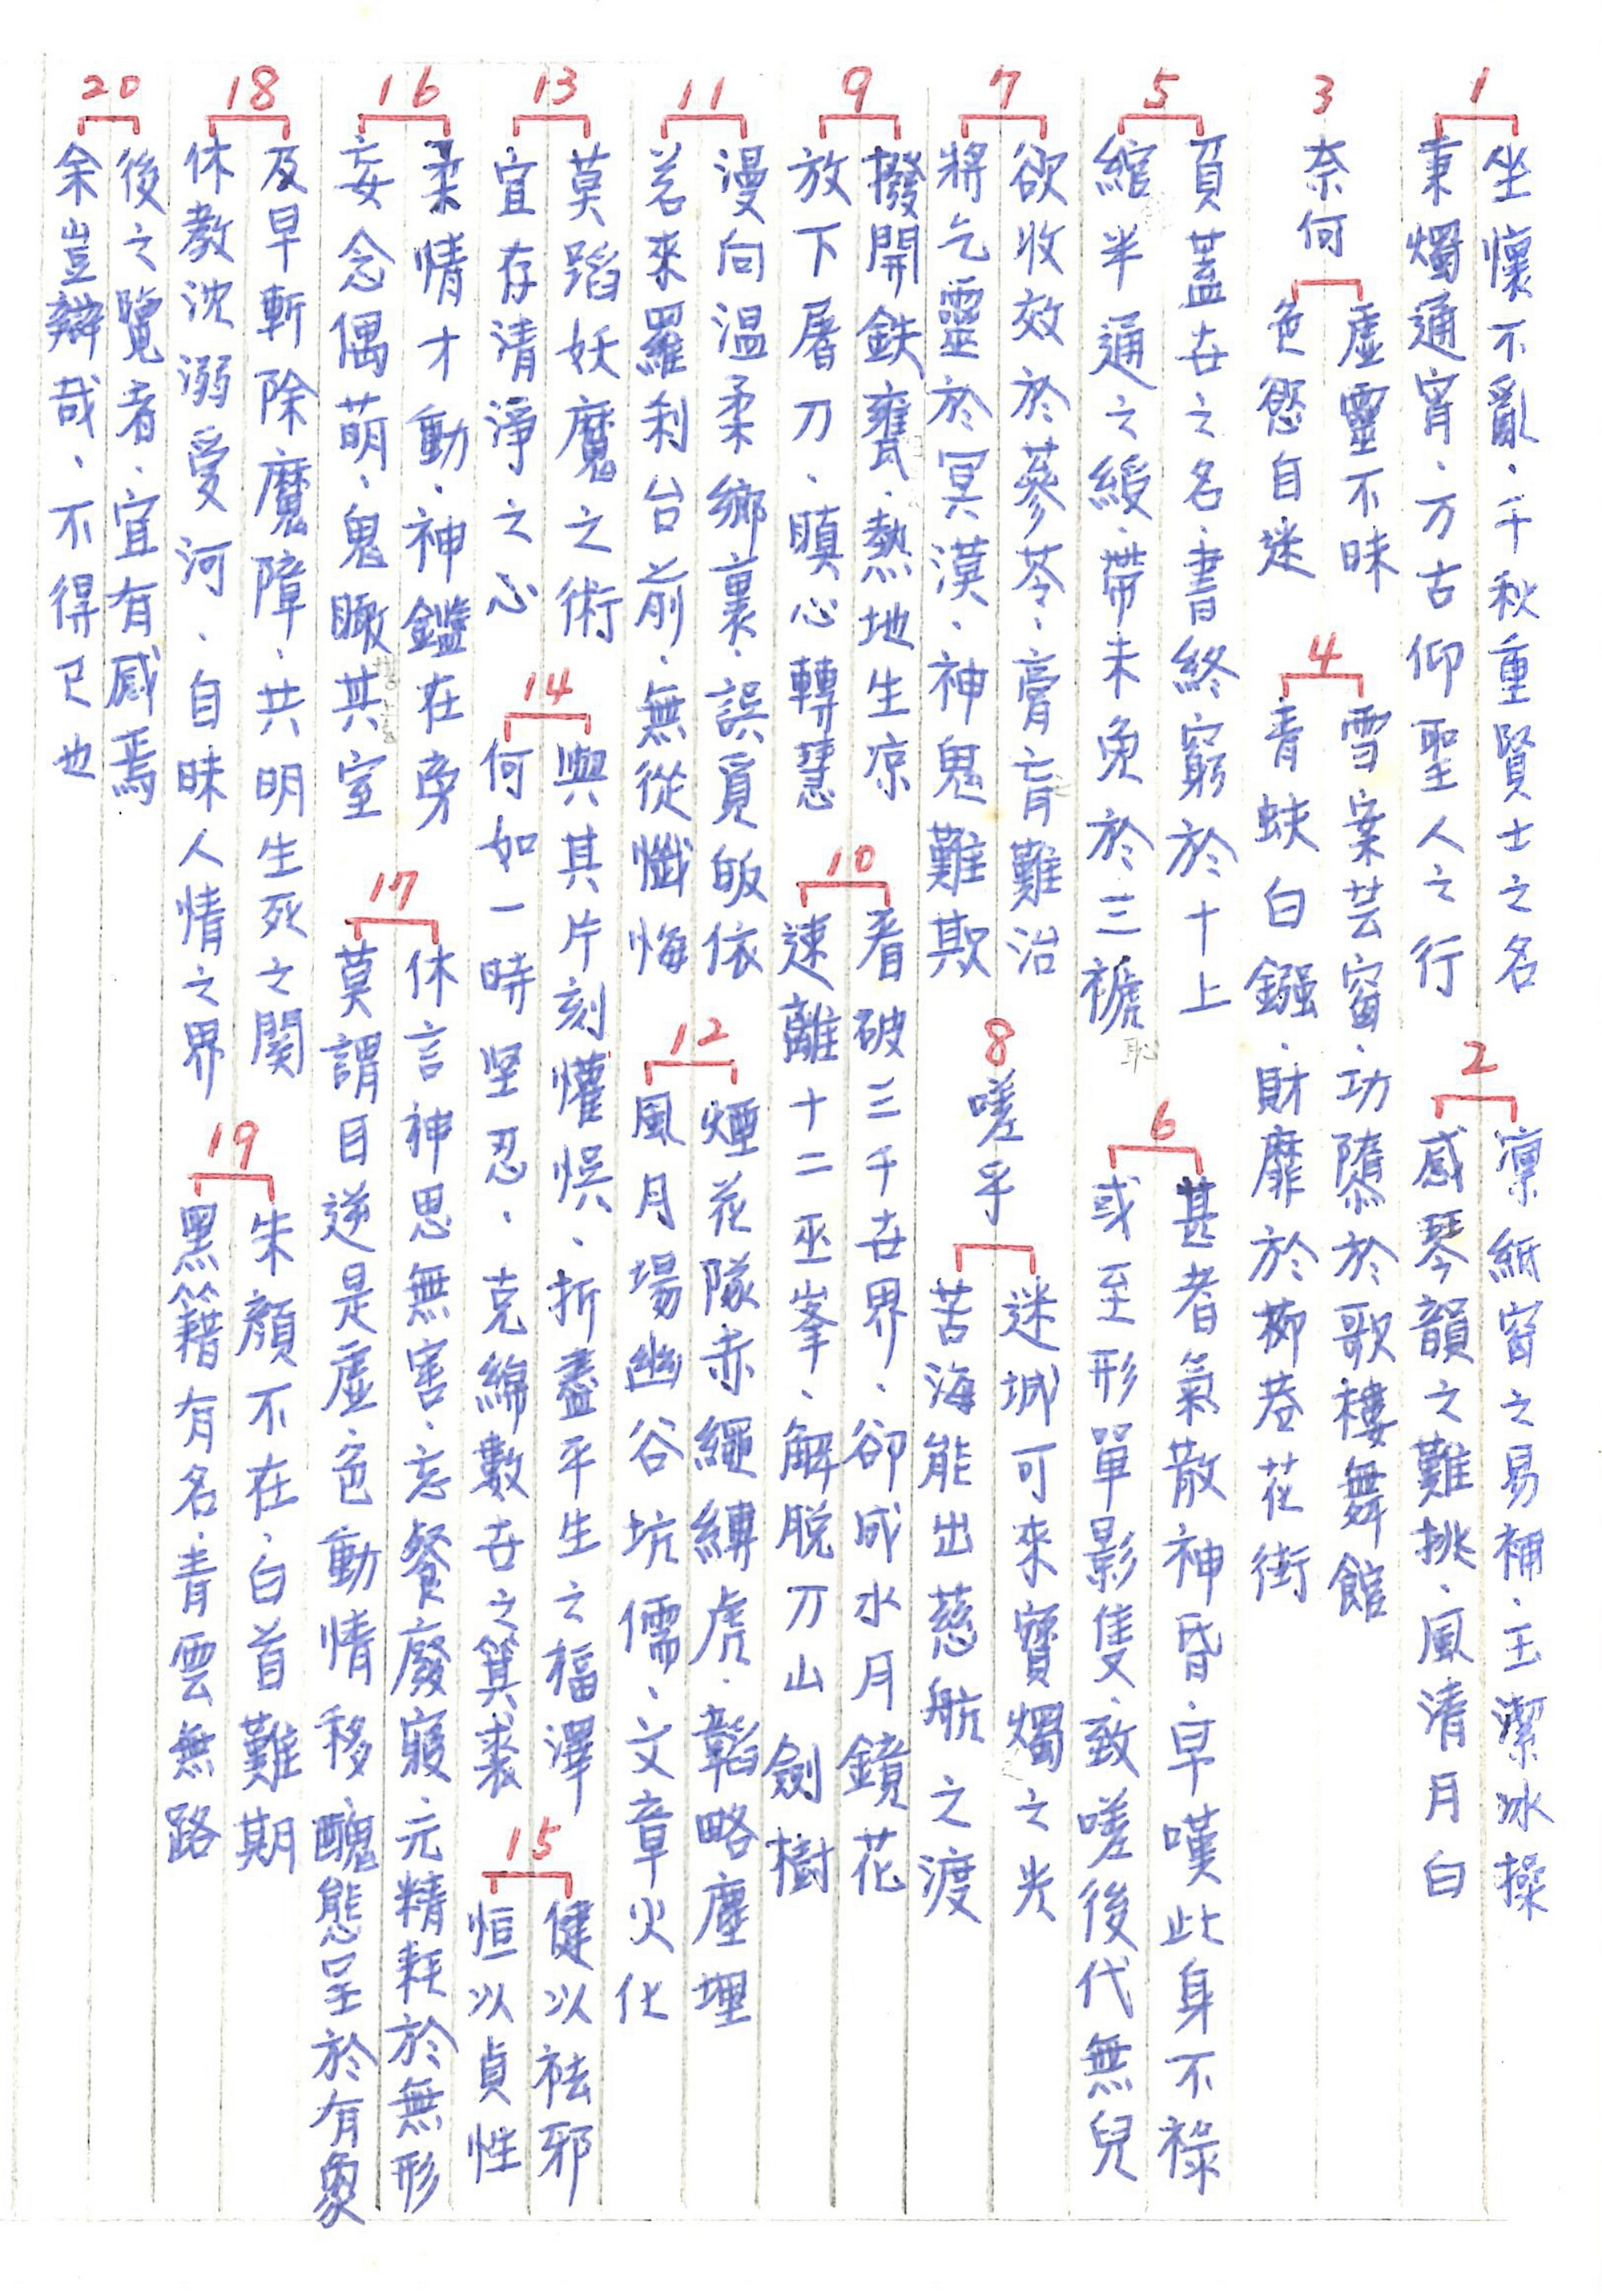 1
坐懷不亂．千秋重賢士之名
秉燭通宵．万古仰聖人之行
2
凜紙窗之易補．玉潔冰操
感琴韻之難挑．風清月白
3
奈何
虛靈不昧
色慾自迷
4
雪案芸窗．功隳於歌樓舞館
青蚨白鏹．財靡於柳巷花街
5
負蓋世之名．書終窮於十上
綰半通之綬．帶未免於三褫
恥
6
甚者氣散神昏．早嘆此身不祿
或至形單影隻．致嗟後代無兒
7
欲收效於蔘苓．膏肓難治
將乞靈於冥漠．神鬼難欺
8
嗟乎
迷城可來寶燭之光
苦海能出慈航之渡
9
撥開鉄甕．熱地生凉
放下屠刀．瞋心轉慧
10
看破三千世界．卻成水月鏡花
速離十二巫峯．解脫刀山劍樹
11
漫向温柔鄉裏．誤覓皈依
若來羅刹台前．無從懺悔
12
煙花隊赤繩縛虎．韜略塵埋
風月場幽谷坑儒．文章火化
13
莫蹈妖魔之術
宜存清淨之心
14
與其片刻懽悮．折盡平生之福澤
何如一時坚忍．克綿數世之箕裘
15
健以祛邪
恒以貞性
16
柔情才動．神鑑在旁
妄念偶萌．鬼瞰其室
17
休言神思無害．忘餐廢寢．元精耗於無形
莫謂目逆是虛．色動情移．醜態呈於有象
18
及早斬除魔障．共明生死之関
休教沈溺受河．自昧人情之界
19
朱顏不在．白首難期
黑籍有名．青雲無路
20
後之覽者．宜有感焉
余豈辯哉．不得已也